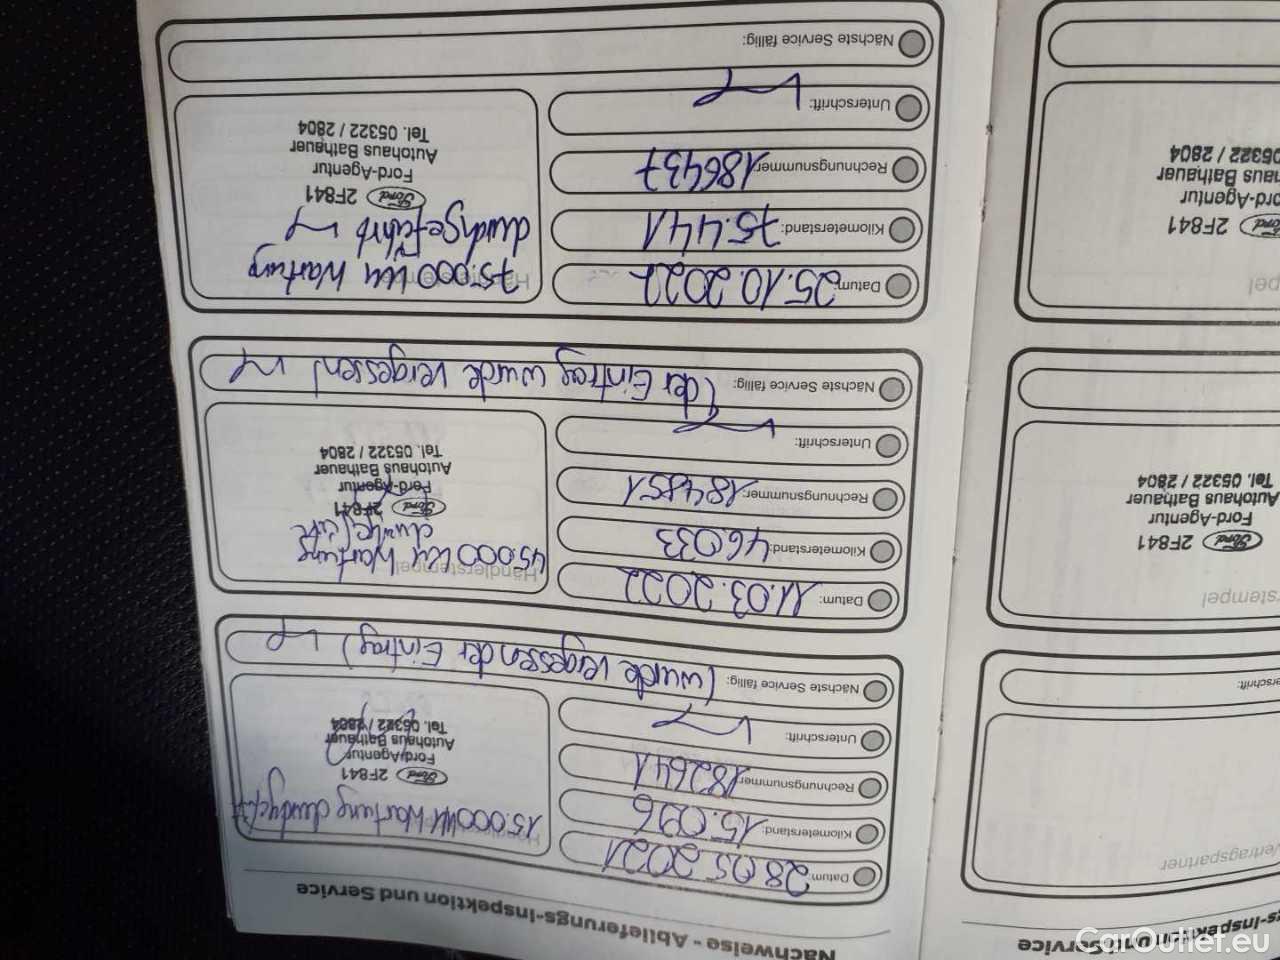 Nachweise - Ablieferungs-Inspektion und Service
Datum: 28.05.2021
Kilometerstand: 15.096
Rechnungsnummer: 182641
Unterschrift:
Nächste Service fällig: (wurde vergessen der Eintrag)
15.000 km Wartung
Ford 2F841
Ford-Agentur
Autohaus Bathauer
Tel. 05322 / 2804
Datum: 11.03.2022
Kilometerstand: 46.033
Rechnungsnummer:
Unterschrift:
Nächste Service fällig: (der Eintrag wurde vergessen)
Händlerstempel
45.000 km Wartung
Ford 2F841
Ford-Agentur
Autohaus Bathauer
Tel. 05322 / 2804
Datum: 25.10.2022
Kilometerstand: 75.441
Rechnungsnummer: 186437
Unterschrift:
Nächste Service fällig:
Händlerstempel
75.000 km Wartung
durchgeführt
Ford 2F841
Ford-Agentur
Autohaus Bathauer
Tel. 05322 / 2804
s-Inspektion und Service
Vertragspartner
erschrift:
rstempel
Ford 2F841
Ford-Agentur
Autohaus Bathauer
Tel. 05322 / 2804
pel
2F841
ord-Agentur
haus Bathauer
05322 / 2804
CarOutlet.eu